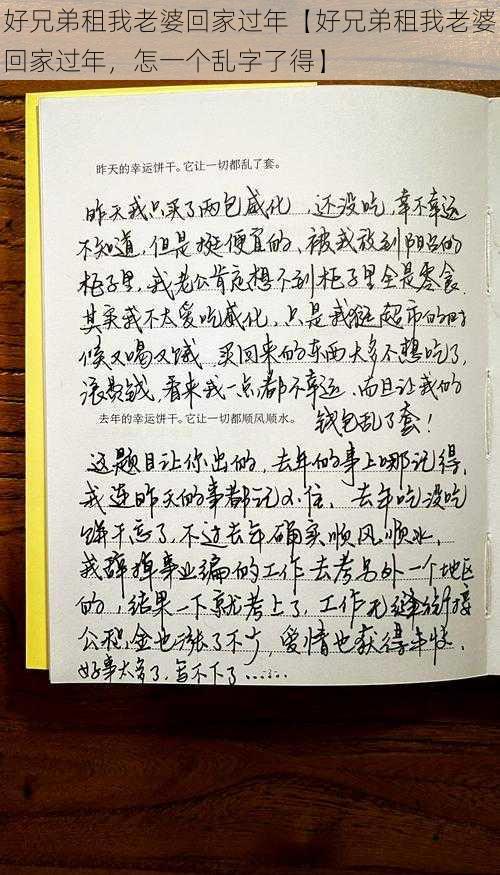 好兄弟租我老婆回家过年【好兄弟租我老婆
回家过年，怎一个乱字了得】
昨天的幸运饼干。它让一切都乱了套。
昨天我只买了两包威化，还没吃，幸不幸运
不知道，但是挺便宜的、被我放到阳台的
柜子里，我老公肯定想不到柜子里全是零食
其实我不太爱吃威化，只是我逛超市的时
候又喝又饿，买回来的东西大多不想吃了，
浪费钱，看来我一点都不幸运，而且让我的
钱包乱了套！
去年的幸运饼干。它让一切都顺风顺水。
这题目让你出的，去年的事上哪记得，
我连昨天的事都记不住，去年吃没吃
饼干忘了，不过去年确实顺风顺水，
我辞掉事业编的工作去考另外一个地区
的，结果一下就考上了，工作无缝衔接
公积金也涨了不少，爱情也获得丰收，
好事太多了，写不下了……